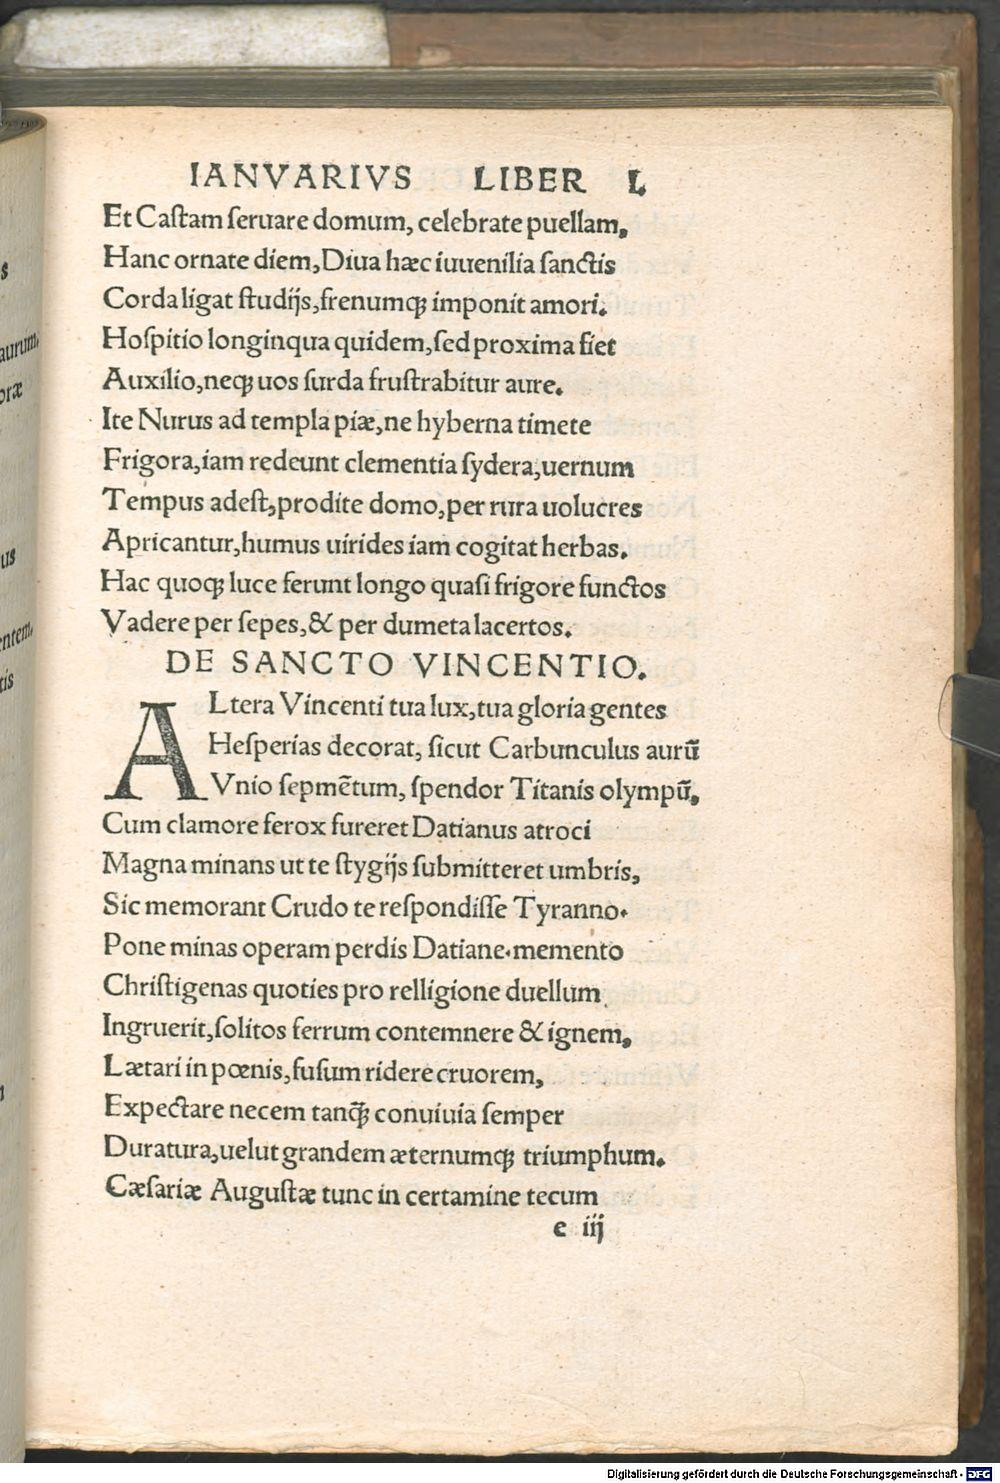 IANVARIVS LIBER I.
Et Caſtam ſeruare domum, celebrate puellam,
Hanc ornate diem, Diua hæc iuuenilia ſanctis
Corda ligat ſtudijs, frenumqꝫ imponit amori.
Hoſpitio longinqua quidem, ſed proxima fiet
Auxilio, neqꝫ uos ſurda fruſtrabitur aure.
Ite Nurus ad templa piæ, ne hyberna timete
Frigora, iam redeunt clementia ſydera, uernum
Tempus adeſt, prodite domo, per rura uolucres
Apricantur, humus uirides iam cogitat herbas.
Hac quoqꝫ luce ferunt longo quaſi frigore functos
Vadere per ſepes, & per dumeta lacertos.
DE SANCTO VINCENTIO.
ALtera Vincenti tua lux, tua gloria gentes
Heſperias decorat, ſicut Carbunculus aurū
Vnio ſepmētum, ſpendor Titanis olympū,
Cum clamore ferox fureret Datianus atroci
Magna minans ut te ſtygijs ſubmitteret umbris,
Sic memorant Crudo te reſpondiſſe Tyranno.
Pone minas operam perdis Datiane. memento
Chriſtigenas quoties pro relligione duellum
Ingruerit, ſolitos ferrum contemnere & ignem,
Lætari in pœnis, fuſum ridere cruorem,
Expectare necem tanqꝫ̄ conuiuia ſemper
Duratura, uelut grandem æternumqꝫ triumphum.
Cæſariæ Auguſtæ tunc in certamine tecum
e iij
s
aurum,
oræ
us
entem,
tis
Digitalisierung gefördert durch die Deutsche Forschungsgemeinschaft - DFG